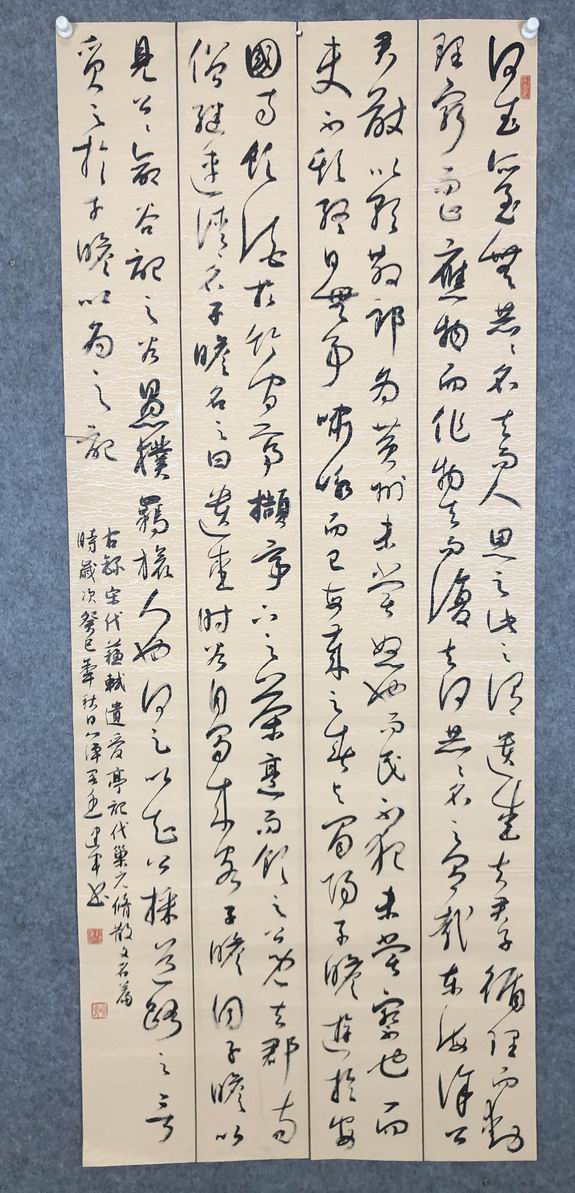 何武所至無赫赫名去而人思之此之謂遺愛夫君子循理而動
理窮而止應物而作物去而復夫何赫赫名之有哉東海徐公
君猷以朝散郎為黃州未嘗怒也而民不犯未嘗察也而
吏不欺終日無事嘯詠而已每歲之春與眉陽子瞻遊於安
國寺飲酒於竹間亭擷亭下之茶烹而飲之公既去郡寺
僧繼連請名子瞻名之曰遺愛時谷自蜀來客子瞻因子瞻以
見公公命谷記之谷愚樸羈旅人也何足以知公採道路之言
質之於子瞻以為之記
右錄宋代蘇軾遺愛亭記代巢元脩散文名篇
時歲次癸巳年秋日 建軍書